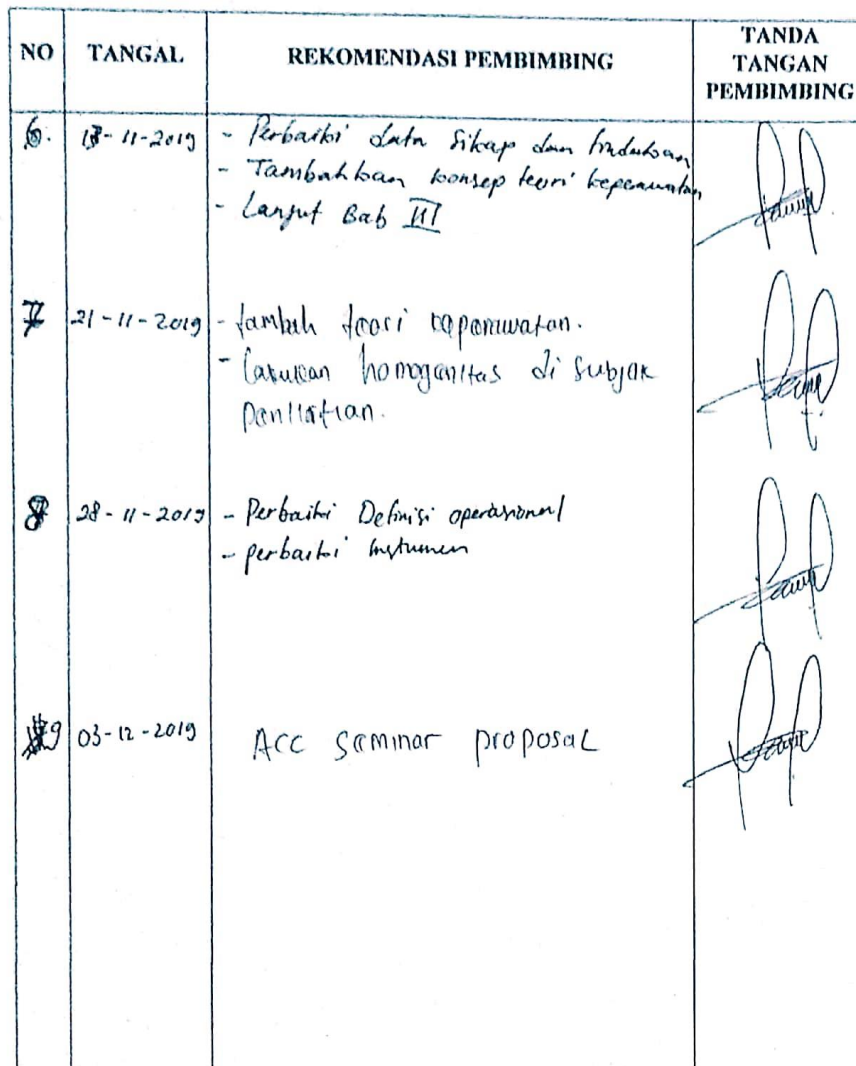 NO TANGAL REKOMENDASI PEMBIMBING TANDA TANGAN PEMBIMBING
6. 18-11-2019 - Perbaiki data Sikap dan tindakan
- Tambahkan konsep teori keperawatan
- Lanjut Bab III
7 21-11-2019 - tambah teori keperawatan.
- lakukan homogenitas di subjek
penelitian.
8 28-11-2019 - Perbaiki Definisi operasional
- perbaiki instumen
9 03-12-2019 ACC seminar proposal